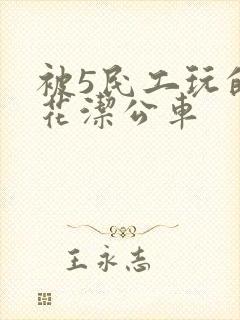 被5民工玩的
花潔公車
王永志